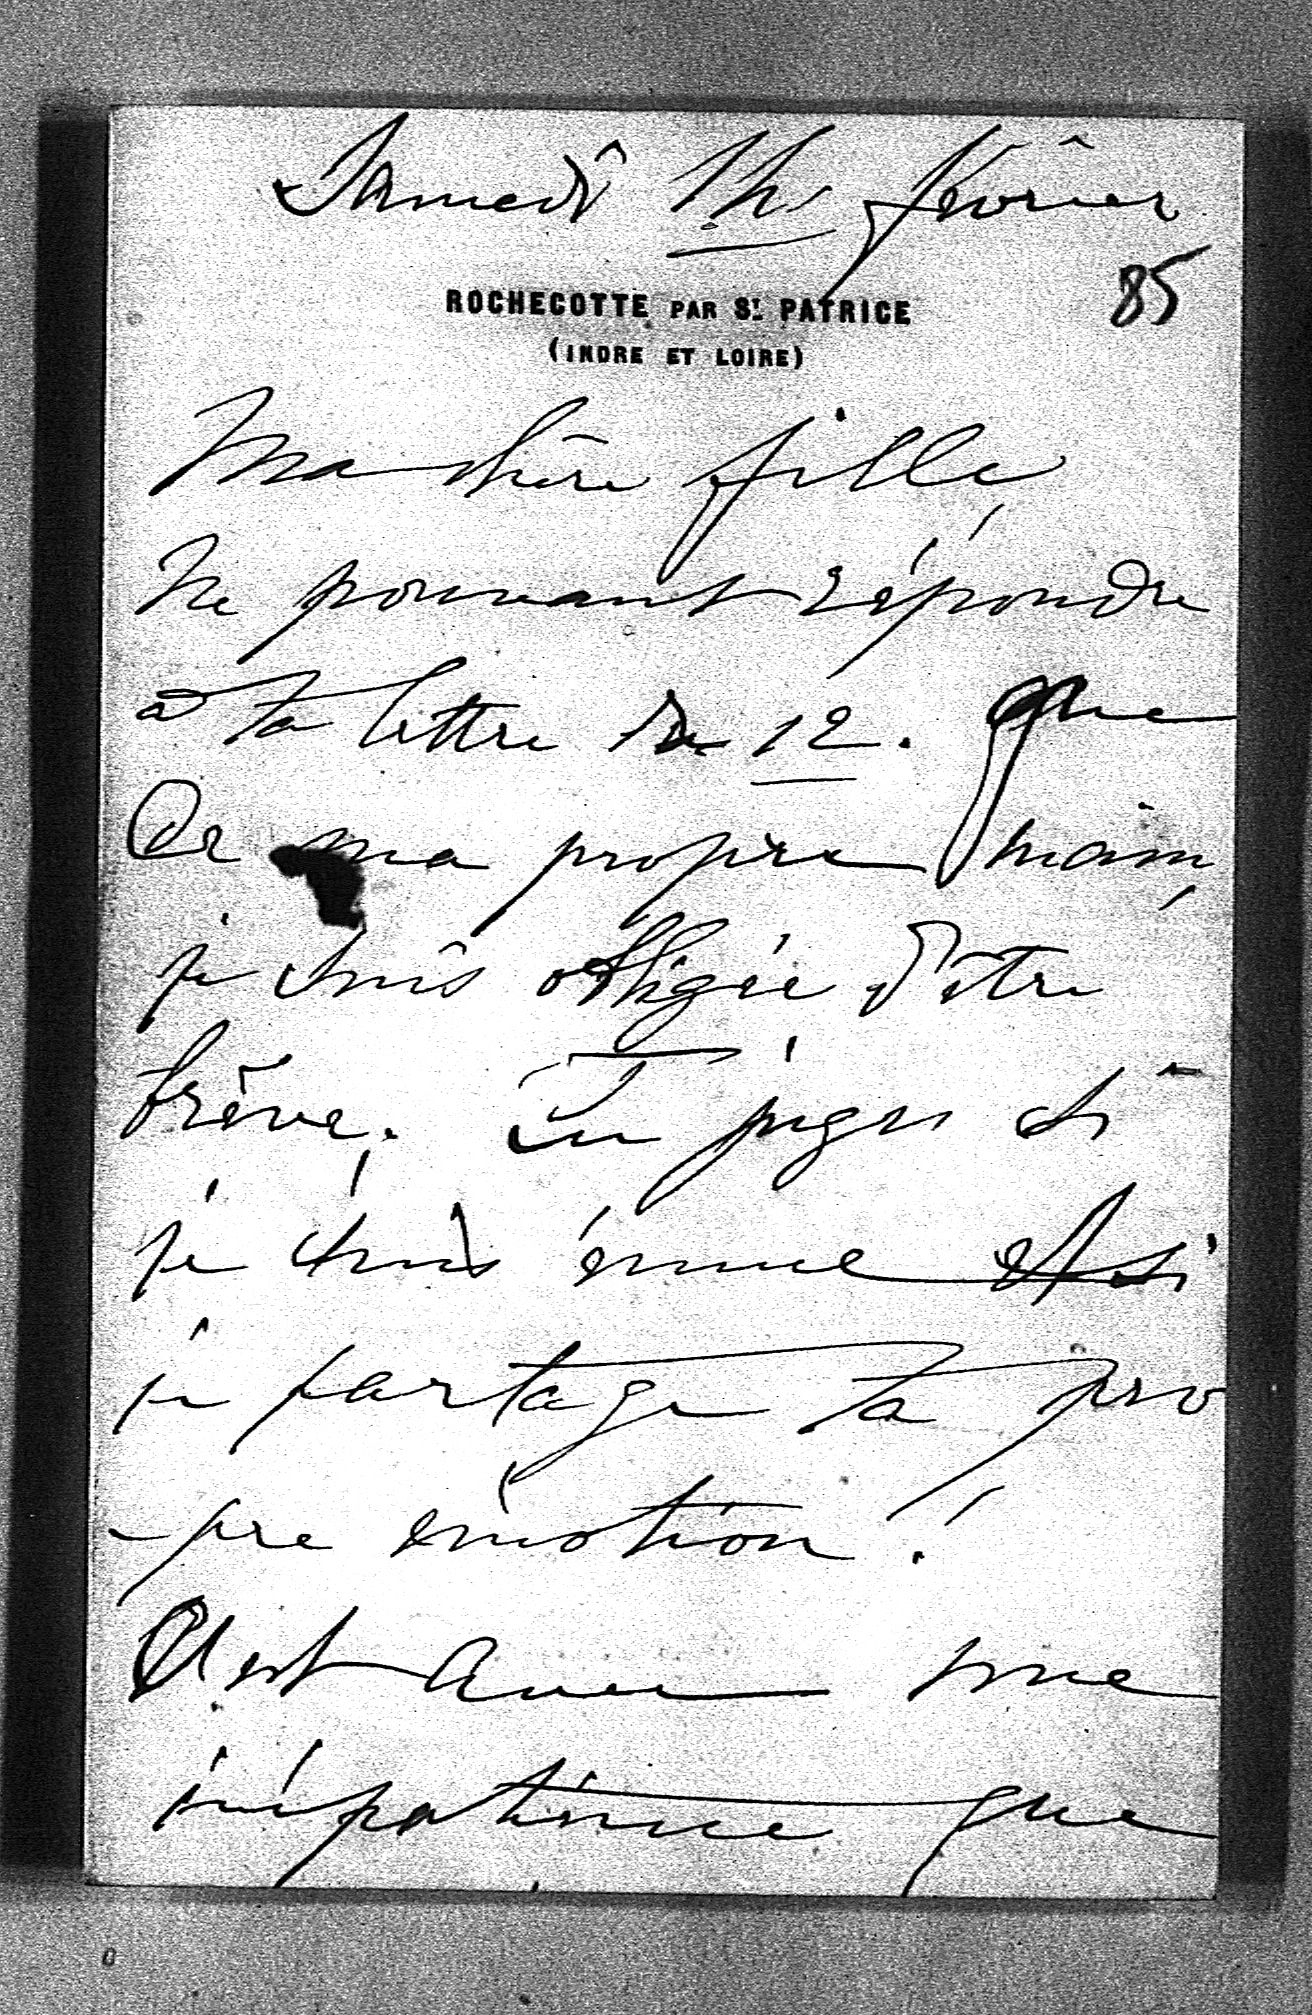 Samedi 14 février
85
ROCHECOTTE PAR St. PATRICE
(INDRE ET LOIRE)
Ma chère fille,
Ne pouvant répondre
à ta lettre du 12. que
de ma propre main,
je suis obligée d'être
brève. Tu juges si
je suis émue et si
je partage ta pro
-pre émotion !
C'est avec une
impatience que